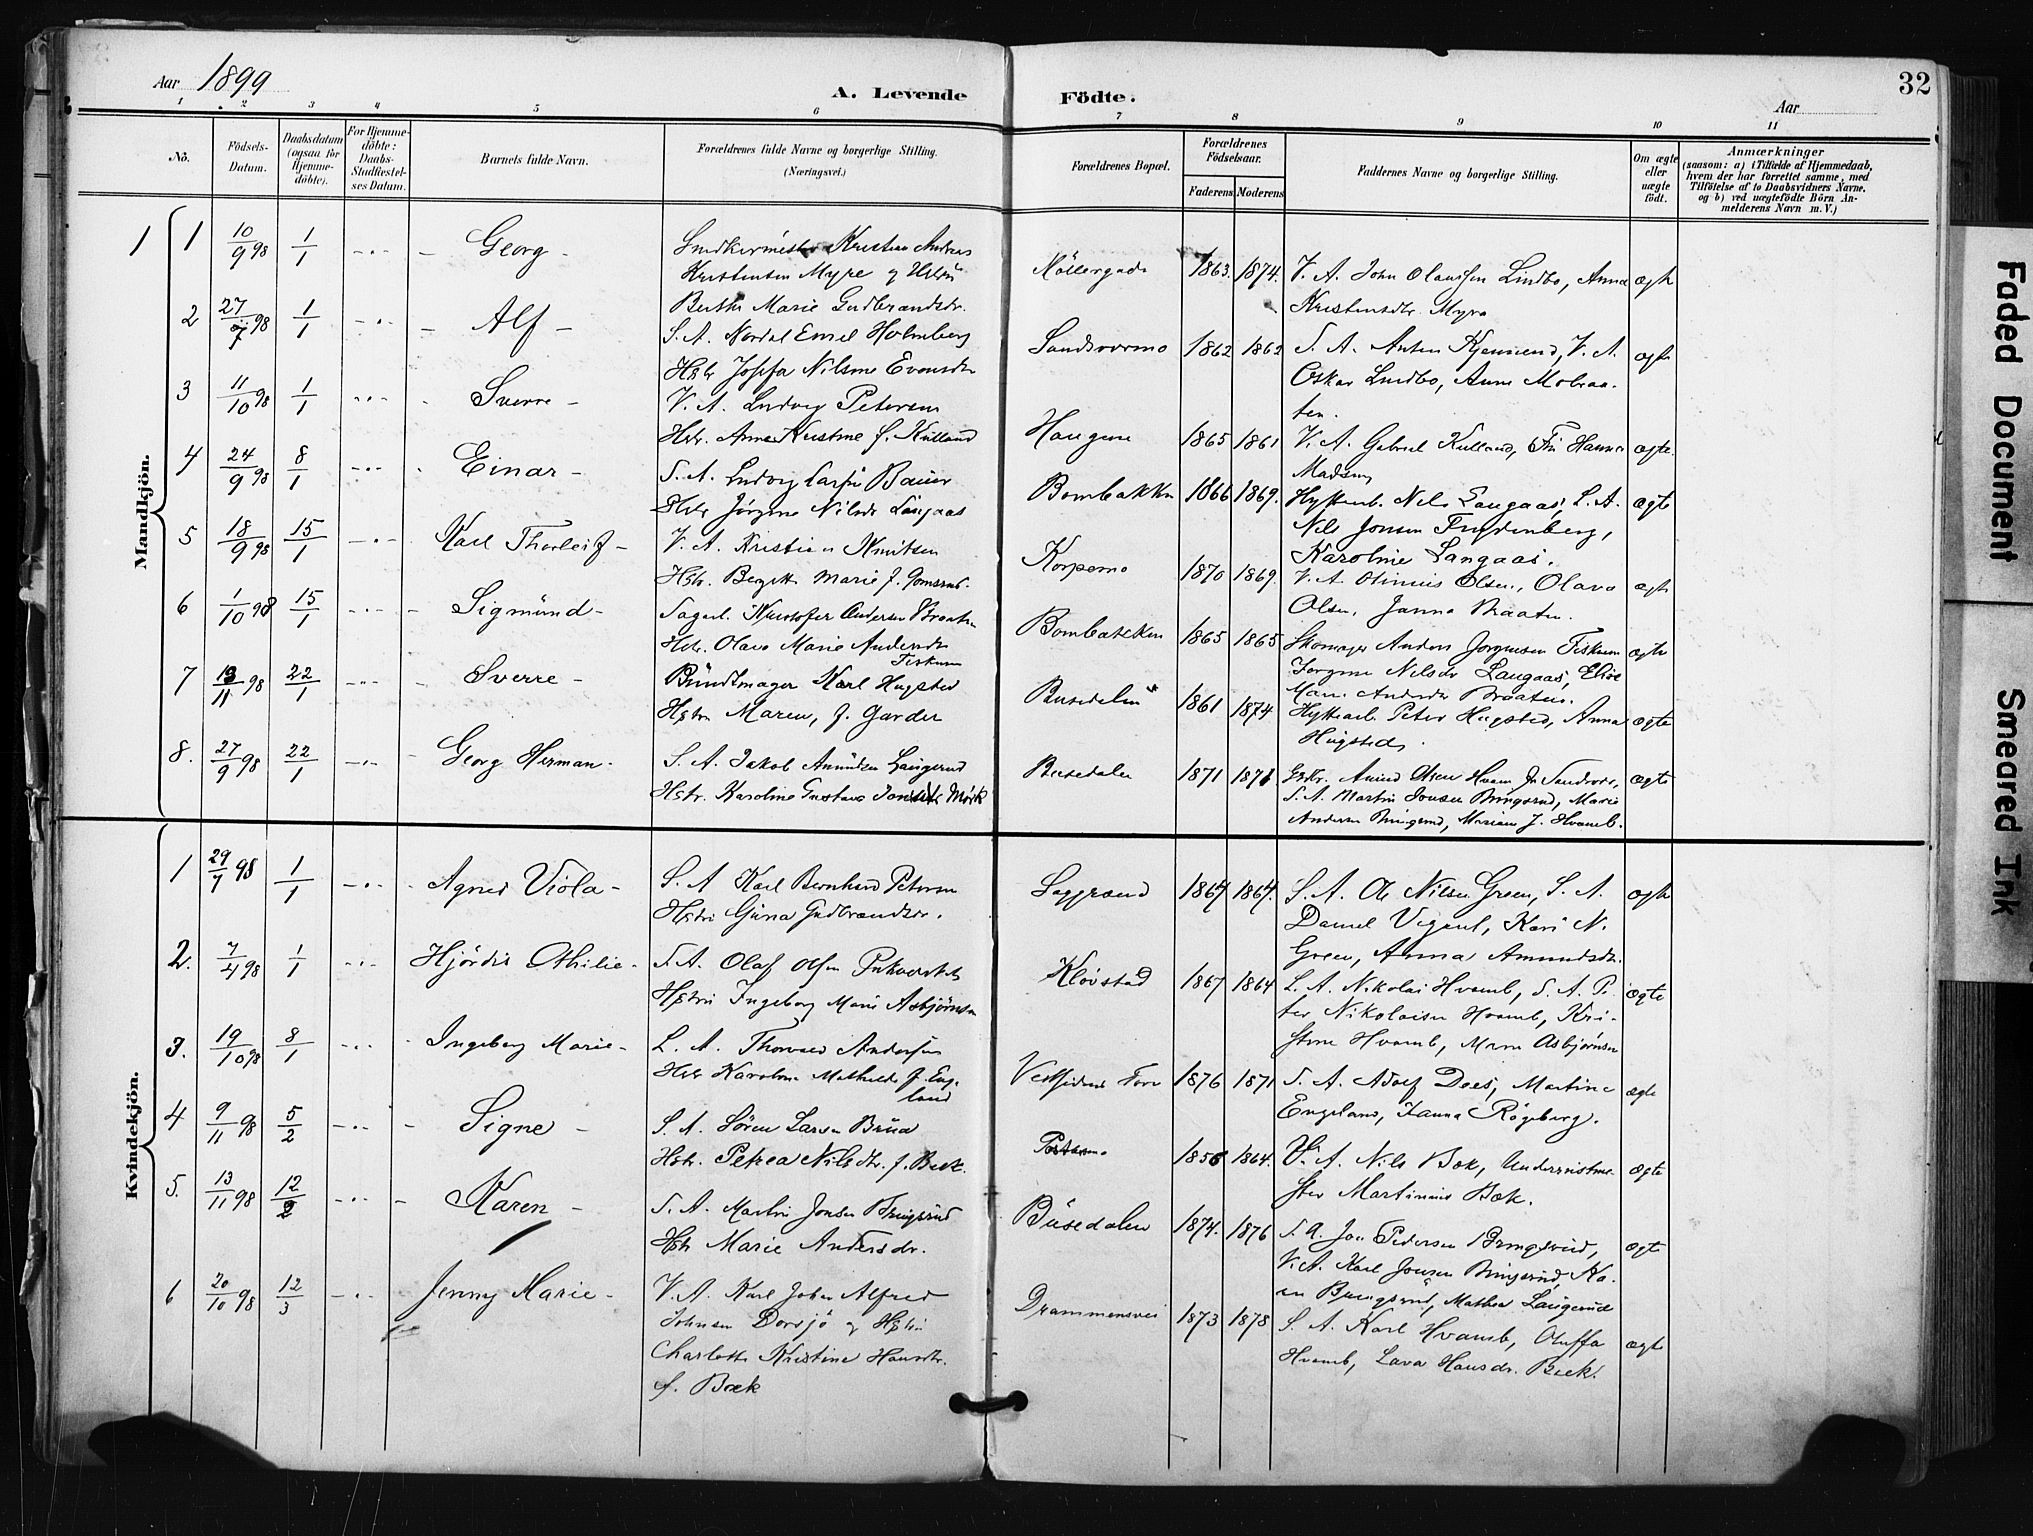 Aar 1899
A. Levende
Födte.
Aar
32
1 2 3 4 5 6 7 8 9 10 11
No.
Födsels-
Datum.
Daabsdatum
(ogsaa for
Hjemme-
döbte).
For Hjemme-
döbte:
Daabs-
Stadfæstel-
ses Datum.
Barnets fulde Navn.
Forældrenes fulde Navne og borgerlige Stilling.
(Næringsvei.)
Forældrenes Bopæl.
Forældrenes
Födselsaar.
Faderens
Moderens
Faddernes Navne og borgerlige Stilling.
Om ægte
eller
uægte
födt.
Anmærkninger
(saasom: a) i Tilfælde af Hjemmedaab,
hvem der har forrettet samme, med
Tilföielse af to Daabsvidners Navne.
og b) ved uægtefödte Börn An-
melderens Navn m. V.)
Mandkjön.
1
1 10/9 98 1/1 Georg
Kristian Andreas
Kristensen Myre og Hstru
Berthe Marie Gudbrandsdr.
1863. 1874.
V. A. John Olaussen Lindbo, Anna
Kristensdr. Myre
ægte
2 27/7 98 1/1 Alf
S. A. Nordal Emil Holmberg
Hstr Josefa Nilsine Evensdr
Sandsværmo 1862 1862
S. A. Anton Kjennerud, V. A.
Oskar Lindbo, Anne Mobraa-
ten.
ægte
3 11/10 98 1/1 Sverre
V. A. Ludvig Petersen
Hstr. Anne Kristine f. Kulland
Haugene 1865 1861
V. A. Gabriel Kulland, Hanna
Madsen
ægte.
4 24/9 98 8/1 Einar
S. A. Ludvig Larsen Bauer
Hstr Jørgine Nilsdr Langaas
Bombakken 1866 1869.
Hyttearb. Nils Langaas, L. A.
Nils Jonsen Frydenberg,
Karoline Langaas.
ægte
5 18/9 98 15/1 Karl Thorleif
V. A. Kristian Knutsen
Hstr. Bergitte Marie f.
Korpemo 1870 1869.
V. A. Olsen, Olava
Olsen, Janna Braaten.
ægte
6 1/10 98 15/1 Sigmund
Sagarb. Kristofer Andersen Braaten
Hstr. Olava Marie Andersdr
Fiskum
Bombakken 1865 1865
Skomager Anders Jorgensen Fiskum
Jorgine Nilsdr Langaas, Elise
Marie Andersdr Braaten.
ægte
7 13/11 98 22/1 Sverre
Bundtmager Karl Hugsted
Hstru Maren, f. Garder
Busedalen 1861 1874
Hyttearb. Peter Hugsted, Anna
Hugsted.
ægte
8. 27/9 98 22/1 Georg Herman
S. A. Jakob Amundsen Langerud
Hstr. Karoline Gustava Jonsdr. Mørk
Busedalen 1871 1871
Olsen Hvam fr Sandsvær,
S. A. Martin Jonsen Bringsrud, Marie
Andersen Bringsrud, Mariane J. Hvamb.
ægte
Kvindekjön.
1 29/7 98 1/1 Agnes Viola
S. A Karl Bernhard Petersen
Hstru Guna Gudbrandsdr.
Saggrænd 1867 1867.
S. A. Ole Nilsen Green, S. A.
Daniel, Kari N.
Green, Anna Amundsdr.
ægte
2. 7/4 98 1/1 Hjördis Othilie
S. A. Olaf Olsen
Hstru Ingeborg Marie Asbjörnsen
Kløvstad 1867 1864
L. A. Nikolai Hvamb, S. A. Pe-
ter Nikolaisen Hvamb, Kri-
stine Hvamb, Marn Asbjørnsen
ægte
3. 19/10 98 8/1 Ingeborg Marie
L. A. Thorvald Andersen
Hstr Karoline Mathilde f. Eng-
land
1876 1871
S. A. Adolf Does, Martine
England, Hanna Rögeberg.
ægte
4 9/11 98 5/2 Signe
S. A. Sören Larsen Brua
Hstr. Petrea Nilsdtr. f. Bæk.
1856 1864.
V. A. Nils Bæk, Underristme-
ster Martinius Bæk.
ægte
5. 13/11 98 12/2 Karen
S. A. Martin Jonsen Bringsrud
Hstr Marie Andersdr.
Busedalen 1874. 1876
S. A. Jon Pedersen Bringsrud,
V. A. Karl Jonsen Bringsrud, Ka-
en Bringsrud, Mathea Langerud
ægte
6 20/10 98 12/3 Jenny Marie
V. A. Karl Johan Alfred
Johnsen Dorsjö og Hstru
Charlotte Kristine Hansdr.
f. Bæk
Drammensvei 1873 1878
S. A. Karl Hvamb, Oluffa
Hvamb, Lava Hansdr. Bæk.
ægte
Faded Document
Smeared Ink